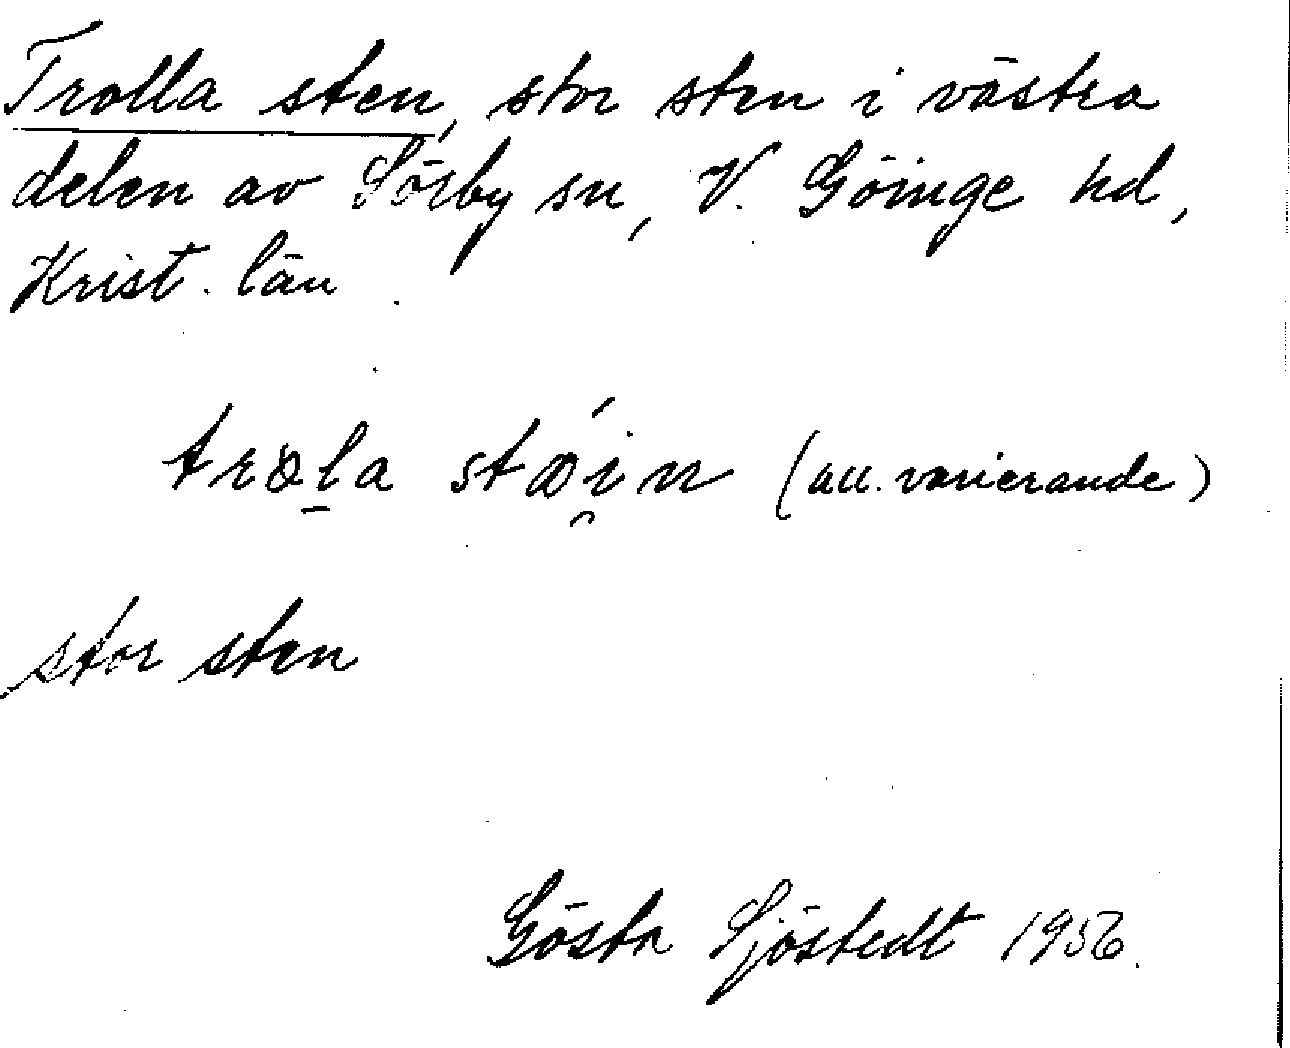 Trolla sten, stor sten i västra
delen av Sörby sn, V. Göinge hd,
Krist. län.
trɷla stæ̀in (acc. varierande)
stor sten
Gösta Sjöstedt 1956.